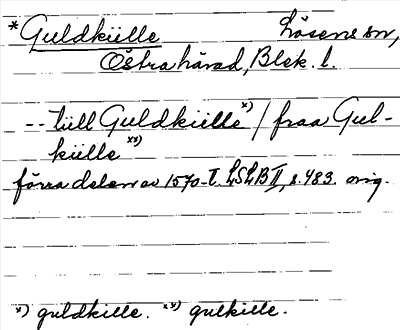 *Guldkille Lösens sn,
Östra härad, Blek. l.
-- till Guldkille x) / fraa Gul-
kille xx)
förra delen av 1570-t. LSLB II, s. 483. orig.
x) guldkille. xx) gulkille.